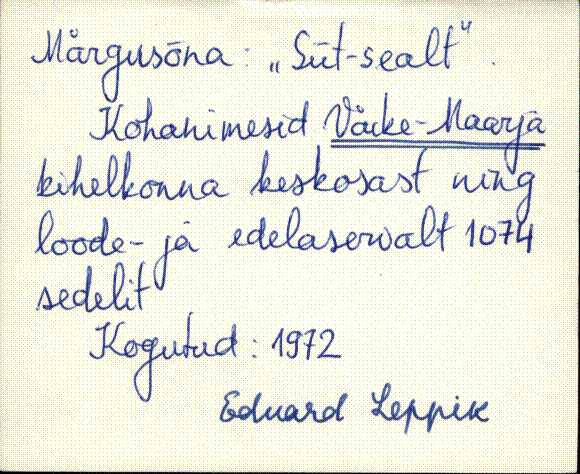 Märgusõna: „Siit-sealt".
Kohanimesid Väike-Maarja
kihelkonna keskosast ning
loode- ja edelaservalt 1074
sedelit
Kogutud: 1972
Eduard Leppik